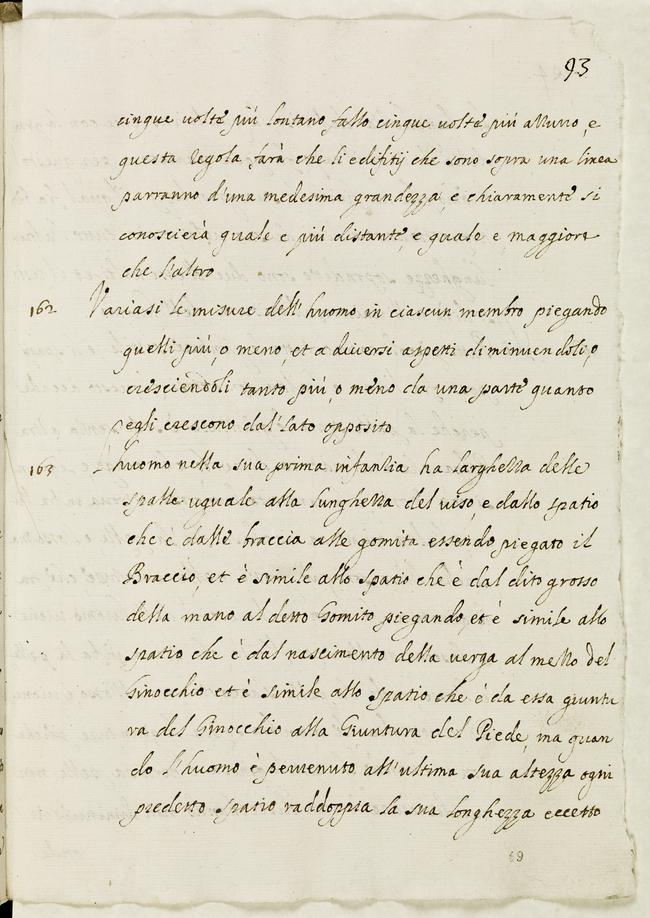 93
cinque volte più lontano fallo cinque volte più azurro, e
questa regola farà che li edifitij che sono sopra una linea
parranno d'una medesima grandezza, e chiaramente si
conoscierà quale e più distante, e quale e maggiore
che l'altro
162 Variasi le misure dell'huomo in ciascun membro piegando
quelli più, o meno, et a diversi aspetti diminuendoli, o
cresciendoli tanto più, o meno da una parte quanto
egli crescono dal lato opposito
163 L'huomo nella sua prima infantia ha larghezza delle
spalle uguale alla lunghezza del viso, e dallo spatio
che è dalle braccia alle gomita essendo piegato il
Braccio, et è simile allo spatio che è dal dito grosso
della mano al detto Gomito piegando, et è simile allo
spatio che è dal nascimento della verga al mezzo del
Ginocchio et è simile allo spatio che è da essa giuntu
ra del Ginocchio alla Giuntura del Piede, ma quan
do l'huomo è pervenuto all'ultima sua altezza ogni
predetto spatio raddoppia la sua longhezza eccetto
69